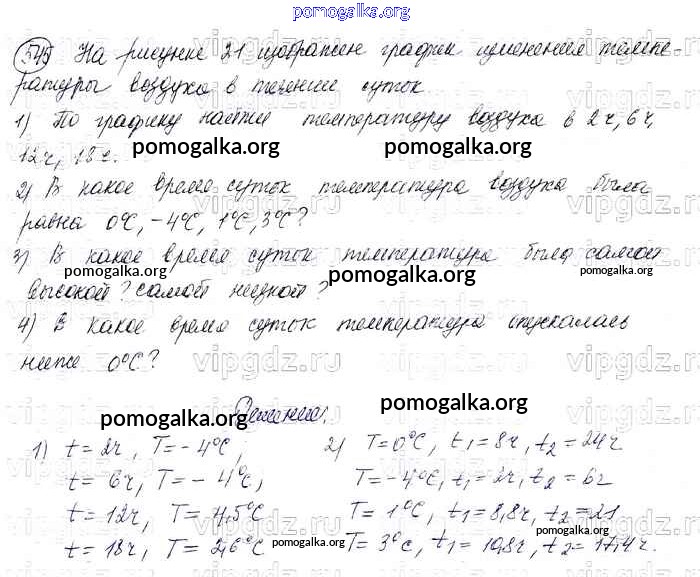 pomogalka.org
545 На рисунке 21 изображен график изменения темпе-
ратуры воздуха в течение суток.
1) По графику найти температуру воздуха в 2ч, 6ч,
12ч, 18ч.
pomogalka.org pomogalka.org
2) В какое время суток температура воздуха была
равна 0°С, -4°С, 1°С, 3°С?
3) В какое время суток температура была самой
pomogalka.org pomogalka.org pomogalka.org
высокой? самой низкой?
4) В какое время суток температура опускалась
ниже 0°С?
vipgdz.ru vipgdz.ru vipgdz.ru
pomogalka.org Решение. pomogalka.org
1) t=2ч, T=-4°С, 2) T=0°С, t₁=8ч, t₂=24ч
t=6ч, T=-4°С, T=-4°С, t₁=2ч, t₂=6ч
t=12ч, T=4,5°С T=1°С, t₁=8,8ч, t₂=21
t=18ч, T=2,6°С pomogalka.org T=3°С, t₁=10,8ч, t₂=17,4ч.
pomogalka.org